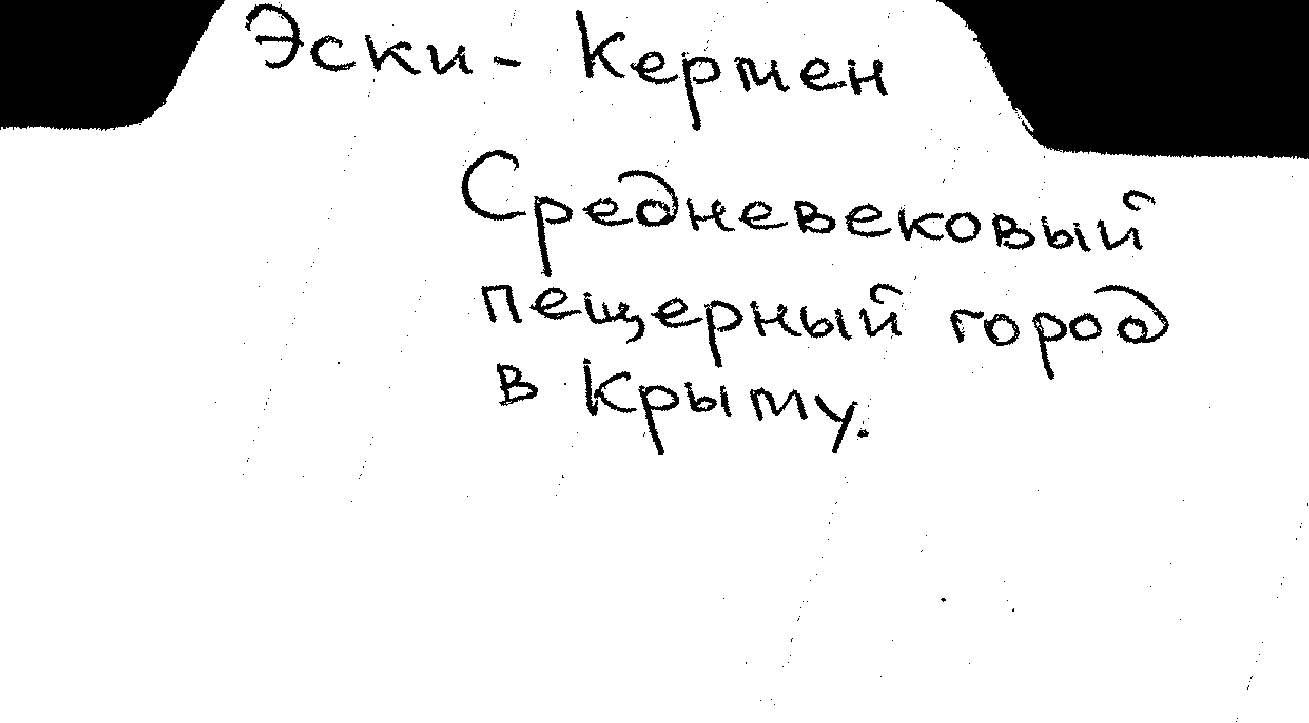 Эски - Кермен
Средневековый
пещерный город
в Крыму.